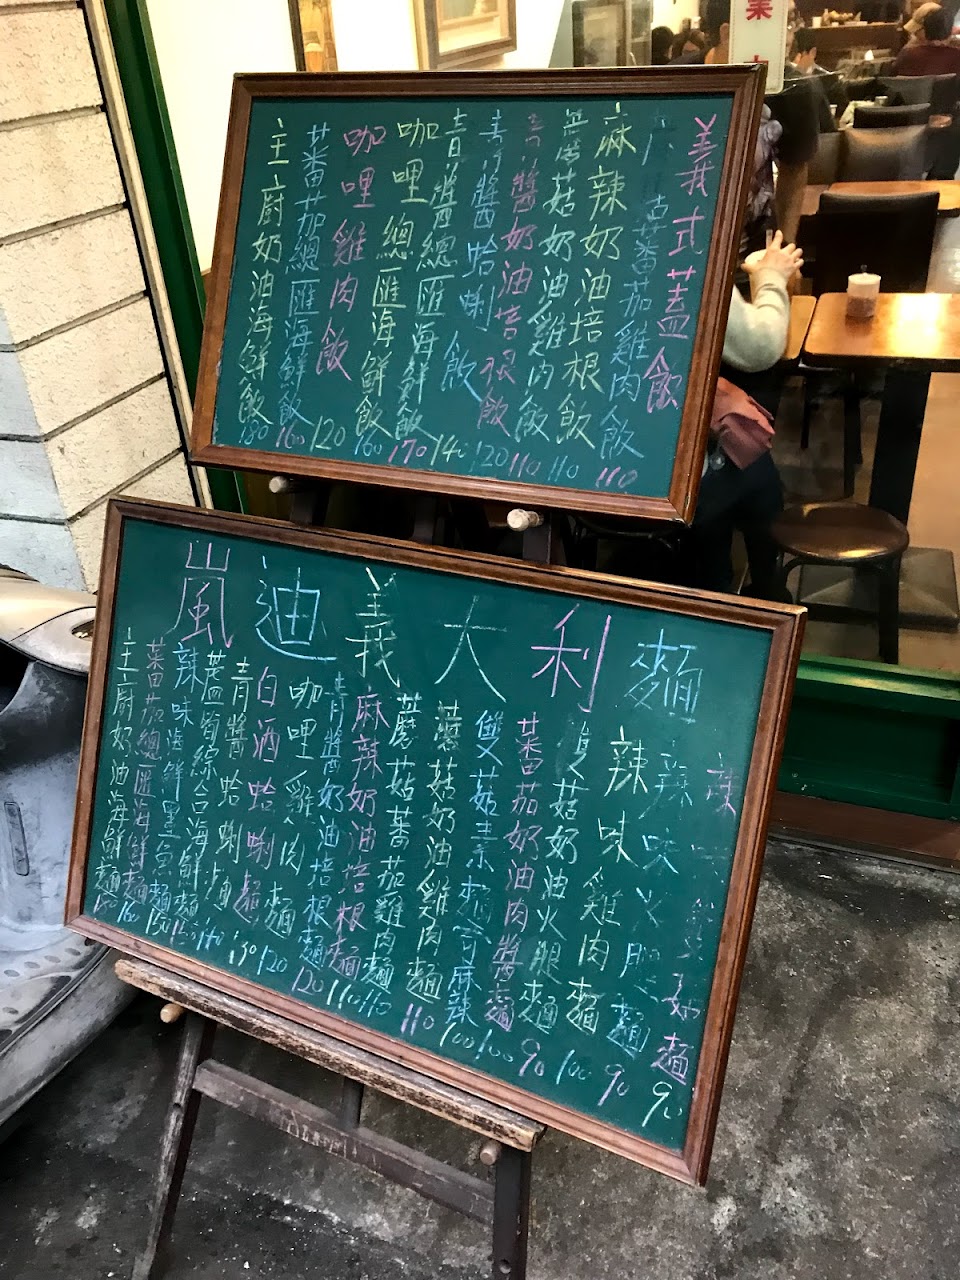 業
義式蓋飯
蕃茄雞肉飯 110
麻辣奶油培根飯 110
蘑菇奶油雞肉飯 110
青醬奶油培根飯 120
青醬蛤蜊飯 140
青醬總匯海鮮飯 170
咖哩總匯海鮮飯 160
咖哩雞肉飯 120
蕃茄總匯海鮮飯 160
主廚奶油海鮮飯 180
嵐迪義大利麵
辣 麵 90
辣味火腿麵 90
辣味雞肉麵 100
雙菇奶油火腿麵 90
蕃茄奶油肉醬麵 100
雙菇素麵可麻辣 100
蘑菇奶油雞肉麵 110
蘑菇蕃茄雞肉麵 110
麻辣奶油培根麵 110
青醬奶油培根麵 120
咖哩雞肉麵 120
白酒蛤蜊麵 130
青醬蛤蜊麵 140
蘆筍綜合海鮮麵
辣味海鮮墨魚麵 150
蕃茄總匯海鮮麵 160
主廚奶油海鮮麵